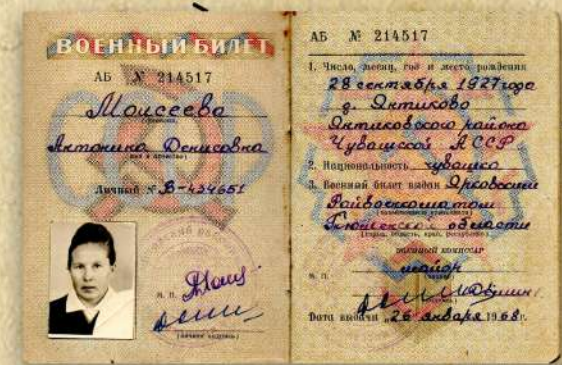 ВОЕННЫЙ БИЛЕТ
АБ № 214517
Моисеева
(фамилия)
Антонина Денисовна
(имя и отчество)
Личный № В-434651
М. П.
(личная подпись)
АБ № 214517
1. Число, месяц, год и место рождения
28 сентября 1927 года
д. Янтиково
Янтиковского района
Чувашской АССР
2. Национальность чувашка
3. Военный билет выдан
Райвоенкоматом
Тюменской области
(город, область, край, республика)
военный комиссар
майор
М. П.
Дата выдачи „26 января 1968 г.